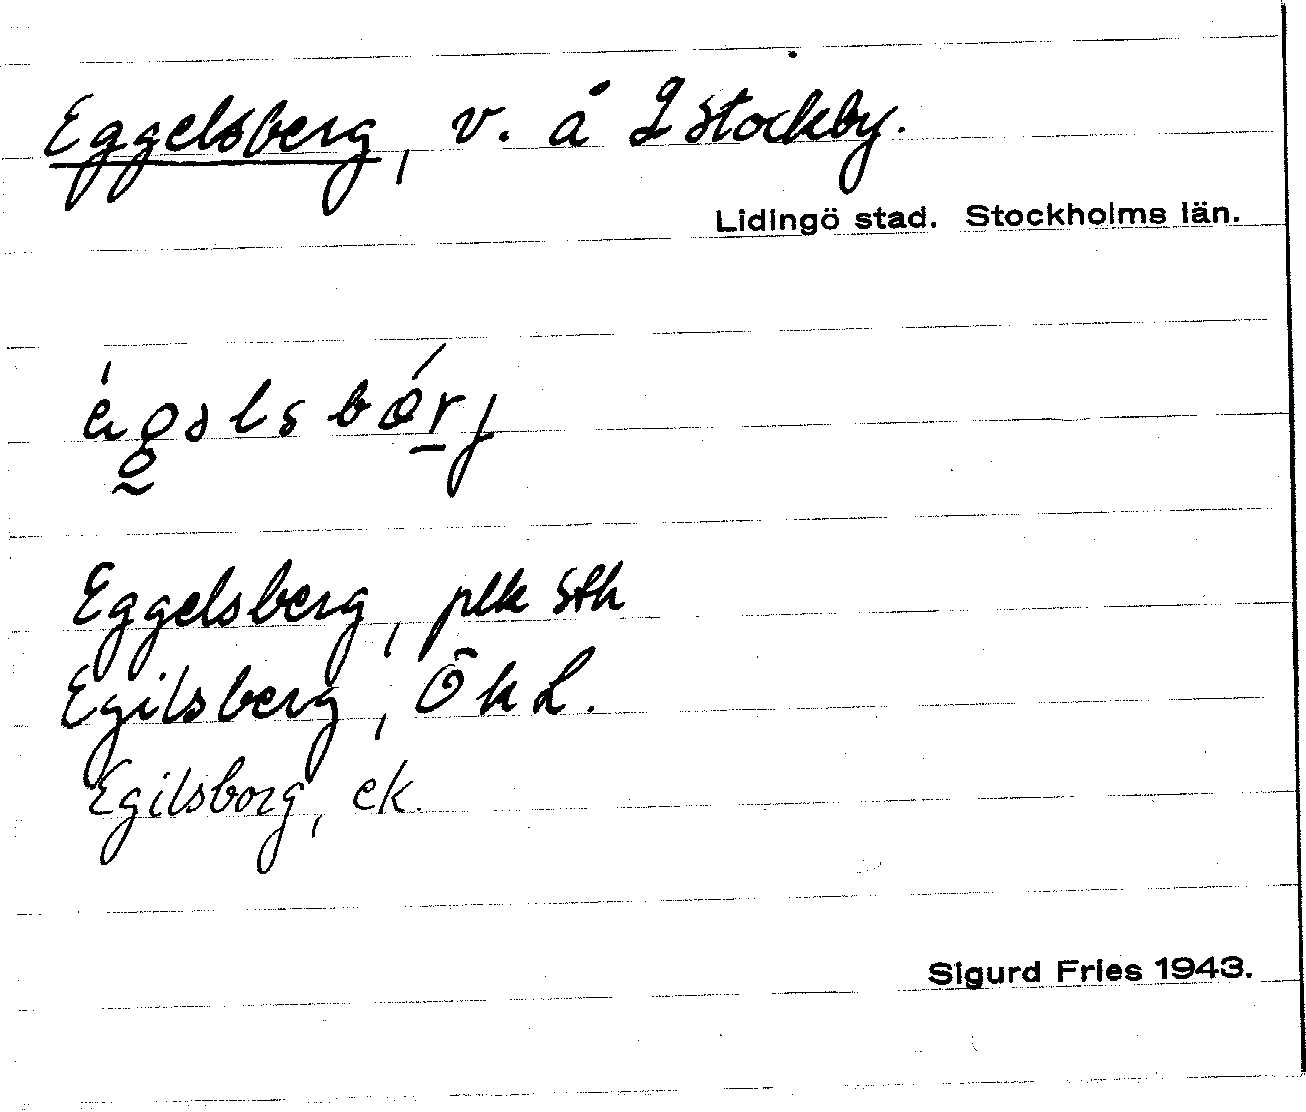 Eggelsberg, v. å 2 Stockby.
Lidingö stad. Stockholms län.
Eggelsberg, plk Sth
Egilsberg, Ök L.
Egilsborg, ek.
Sigurd Fries 1943.